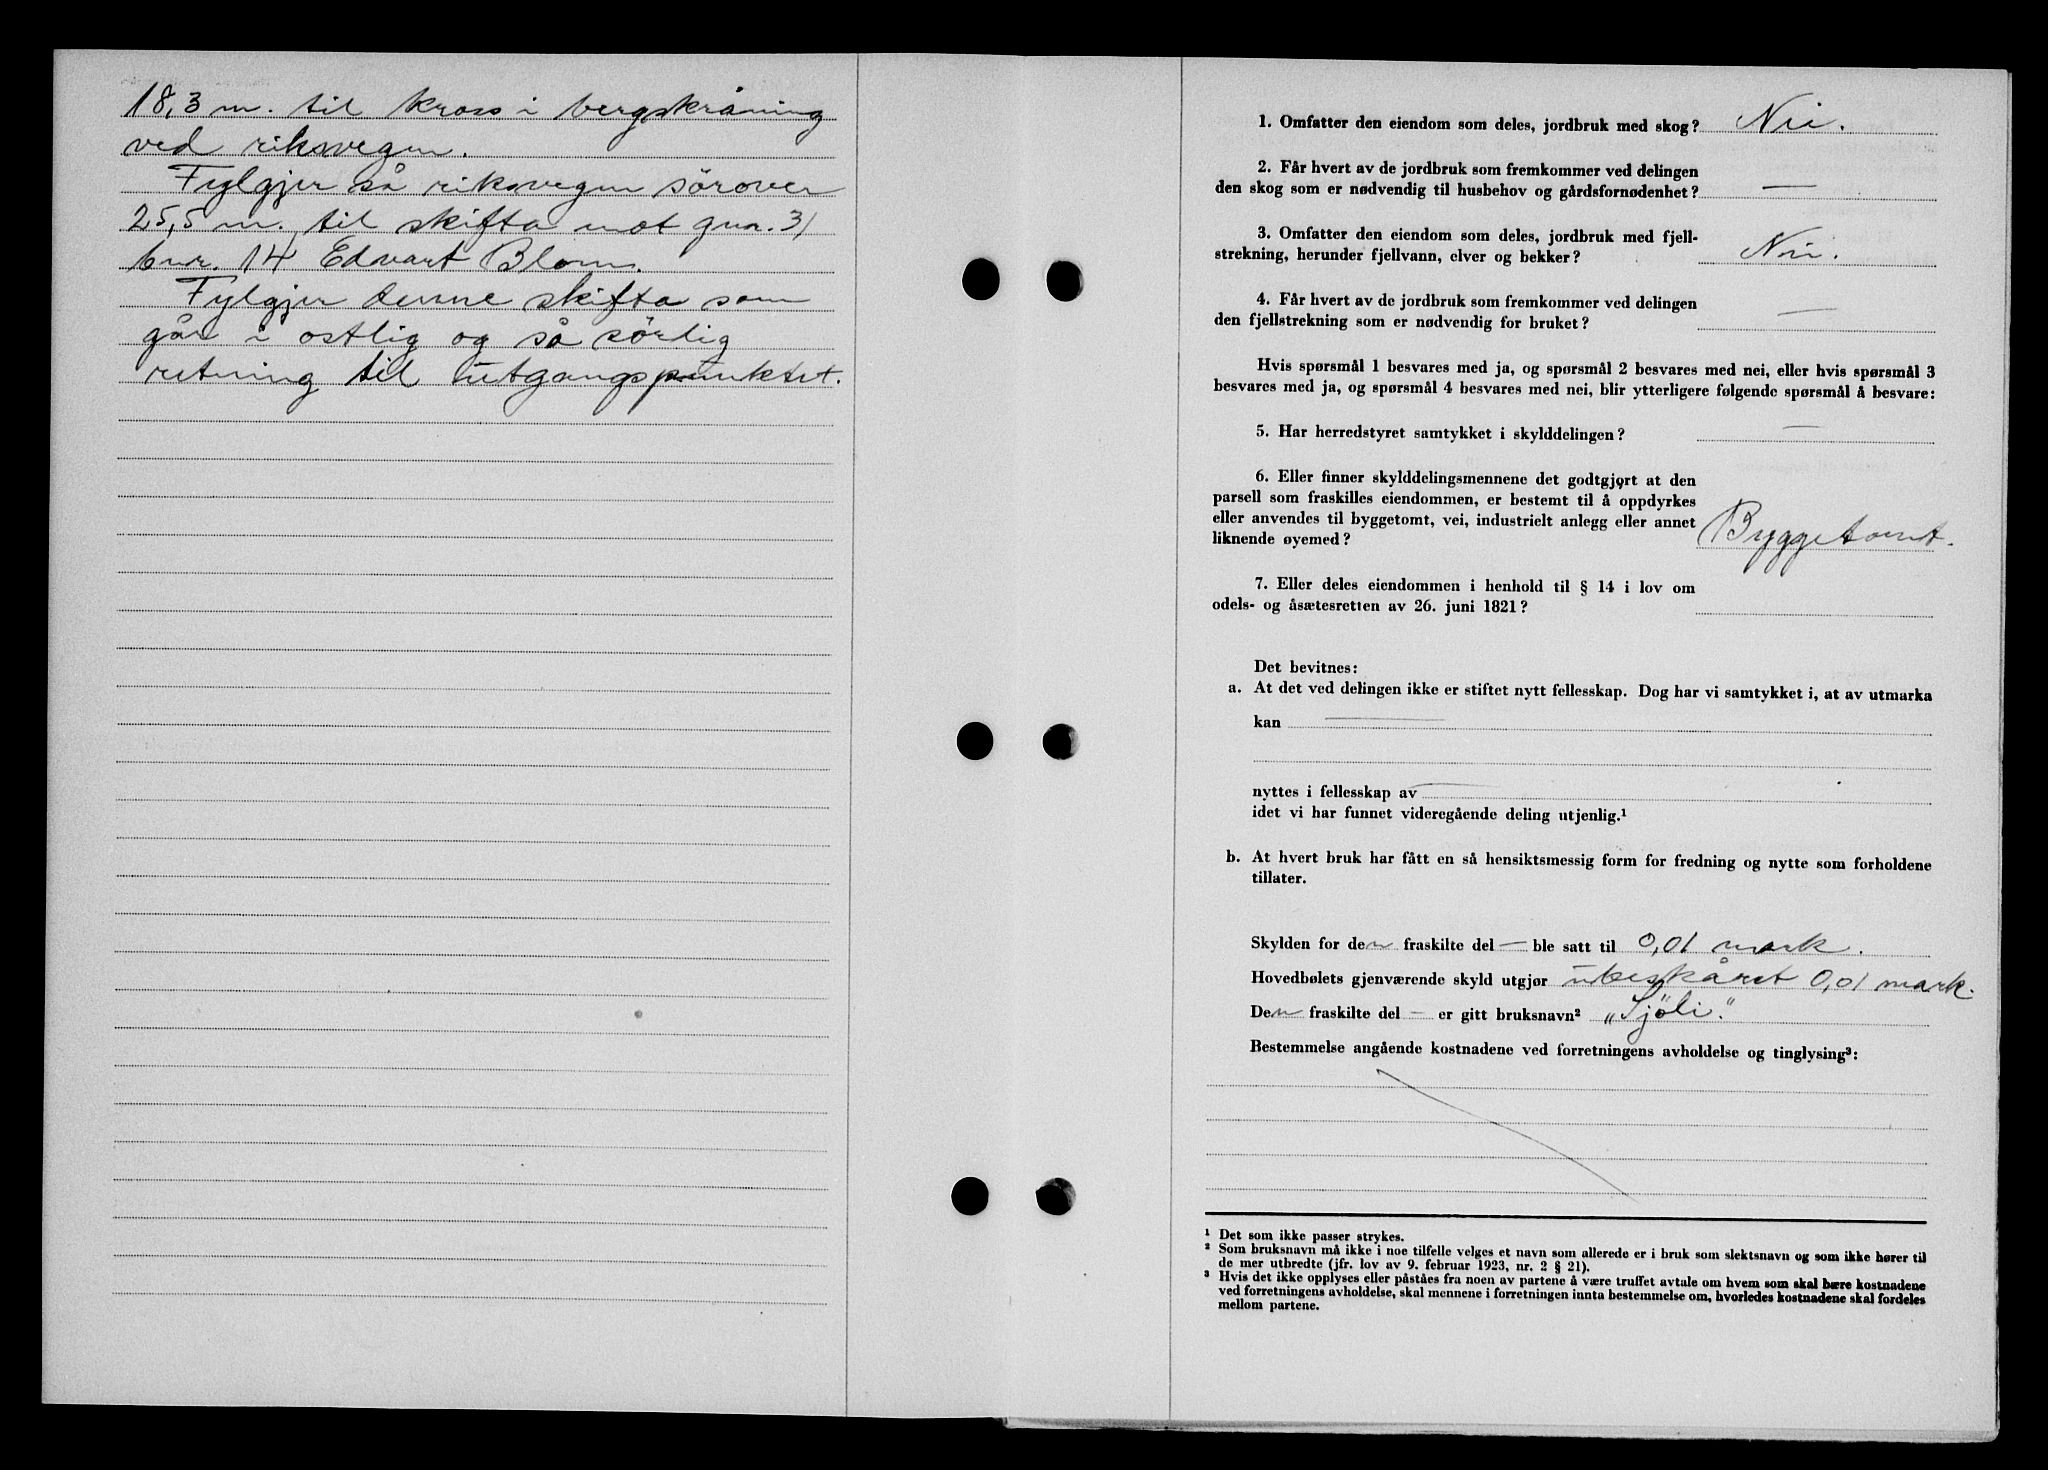 18,3 m. til kross i bergskråning
ved riksvegen.
Fylgjer så riksvegen sörover
25,5 m. til skifta mot gnr. 31
bnr. 14 Edvart Blom.
Fylgjer denne skifta som
går i ostlig og så sörlig
retning til utgangspunktet.
1. Omfatter den eiendom som deles, jordbruk med skog? Nei.
2. Får hvert av de jordbruk som fremkommer ved delingen
den skog som er nødvendig til husbehov og gårdsfornødenhet? —
3. Omfatter den eiendom som deles, jordbruk med fjell-
strekning, herunder fjellvann, elver og bekker? Nei.
4. Får hvert av de jordbruk som fremkommer ved delingen
den fjellstrekning som er nødvendig for bruket? —
Hvis spørsmål 1 besvares med ja, og spørsmål 2 besvares med nei, eller hvis spørsmål 3
besvares med ja, og spørsmål 4 besvares med nei, blir ytterligere følgende spørsmål å besvare:
5. Har herredstyret samtykket i skylddelingen? —
6. Eller finner skylddelingsmennene det godtgjort at den
parsell som fraskilles eiendommen, er bestemt til å oppdyrkes
eller anvendes til byggetomt, vei, industrielt anlegg eller annet
liknende øyemed? Byggetomt.
7. Eller deles eiendommen i henhold til § 14 i lov om
odels- og åsætesretten av 26. juni 1821?
Det bevitnes:
a. At det ved delingen ikke er stiftet nytt fellesskap. Dog har vi samtykket i, at av utmarka
kan —
nyttes i fellesskap av —
idet vi har funnet videregående deling utjenlig.¹
b. At hvert bruk har fått en så hensiktsmessig form for fredning og nytte som forholdene
tillater.
Skylden for den fraskilte del — ble satt til 0,01 mark.
Hovedbølets gjenværende skyld utgjør ubeskåret 0,01 mark.
Den fraskilte del — er gitt bruksnavn² „Sjöli".
Bestemmelse angående kostnadene ved forretningens avholdelse og tinglysing³:
¹ Det som ikke passer strykes.
² Som bruksnavn må ikke i noe tilfelle velges et navn som allerede er i bruk som slektsnavn og som ikke hører til
de mer utbredte (jfr. lov av 9. februar 1923, nr. 2 § 21).
³ Hvis det ikke opplyses eller påståes fra noen av partene å være truffet avtale om hvem som skal bære kostnadene
ved forretningens avholdelse, skal mennene i forretningen innta bestemmelse om, hvorledes kostnadene skal fordeles
mellom partene.